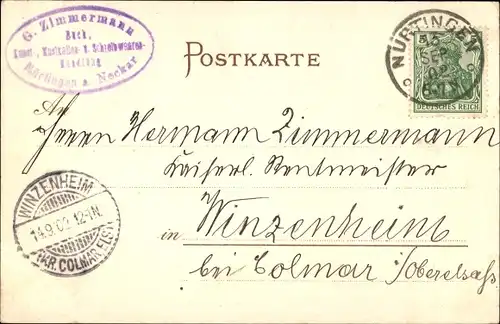 G. Zimmermann
Buch-,
Kunst-, Musikalien- u. Schreibwaren-
Handlung
Nürtingen a. Neckar
POSTKARTE
NÜRTINGEN
SEP
02
DEUTSCHES REICH
An
Herrn Hermann Zimmermann
Kaiserl. Rentmeister
in Winzenheim
bei Colmar i/Oberelsaß
WINZENHEIM
14.9.02. 12-1N.
(KR. COLMAR ELS.)